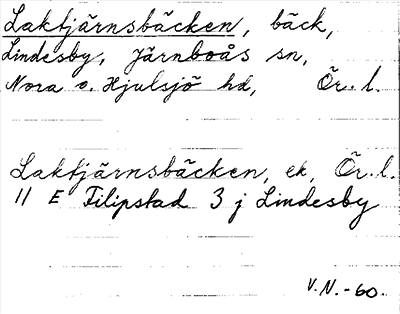 Laktjärnsbäcken, bäck,
Lindesby, Järnboås sn,
Nora o. Hjulsjö hd, Ör. l.
Laktjärnsbäcken, ek, Ör. l.
11 E Filipstad 3 j Lindesby
V.N.-60.